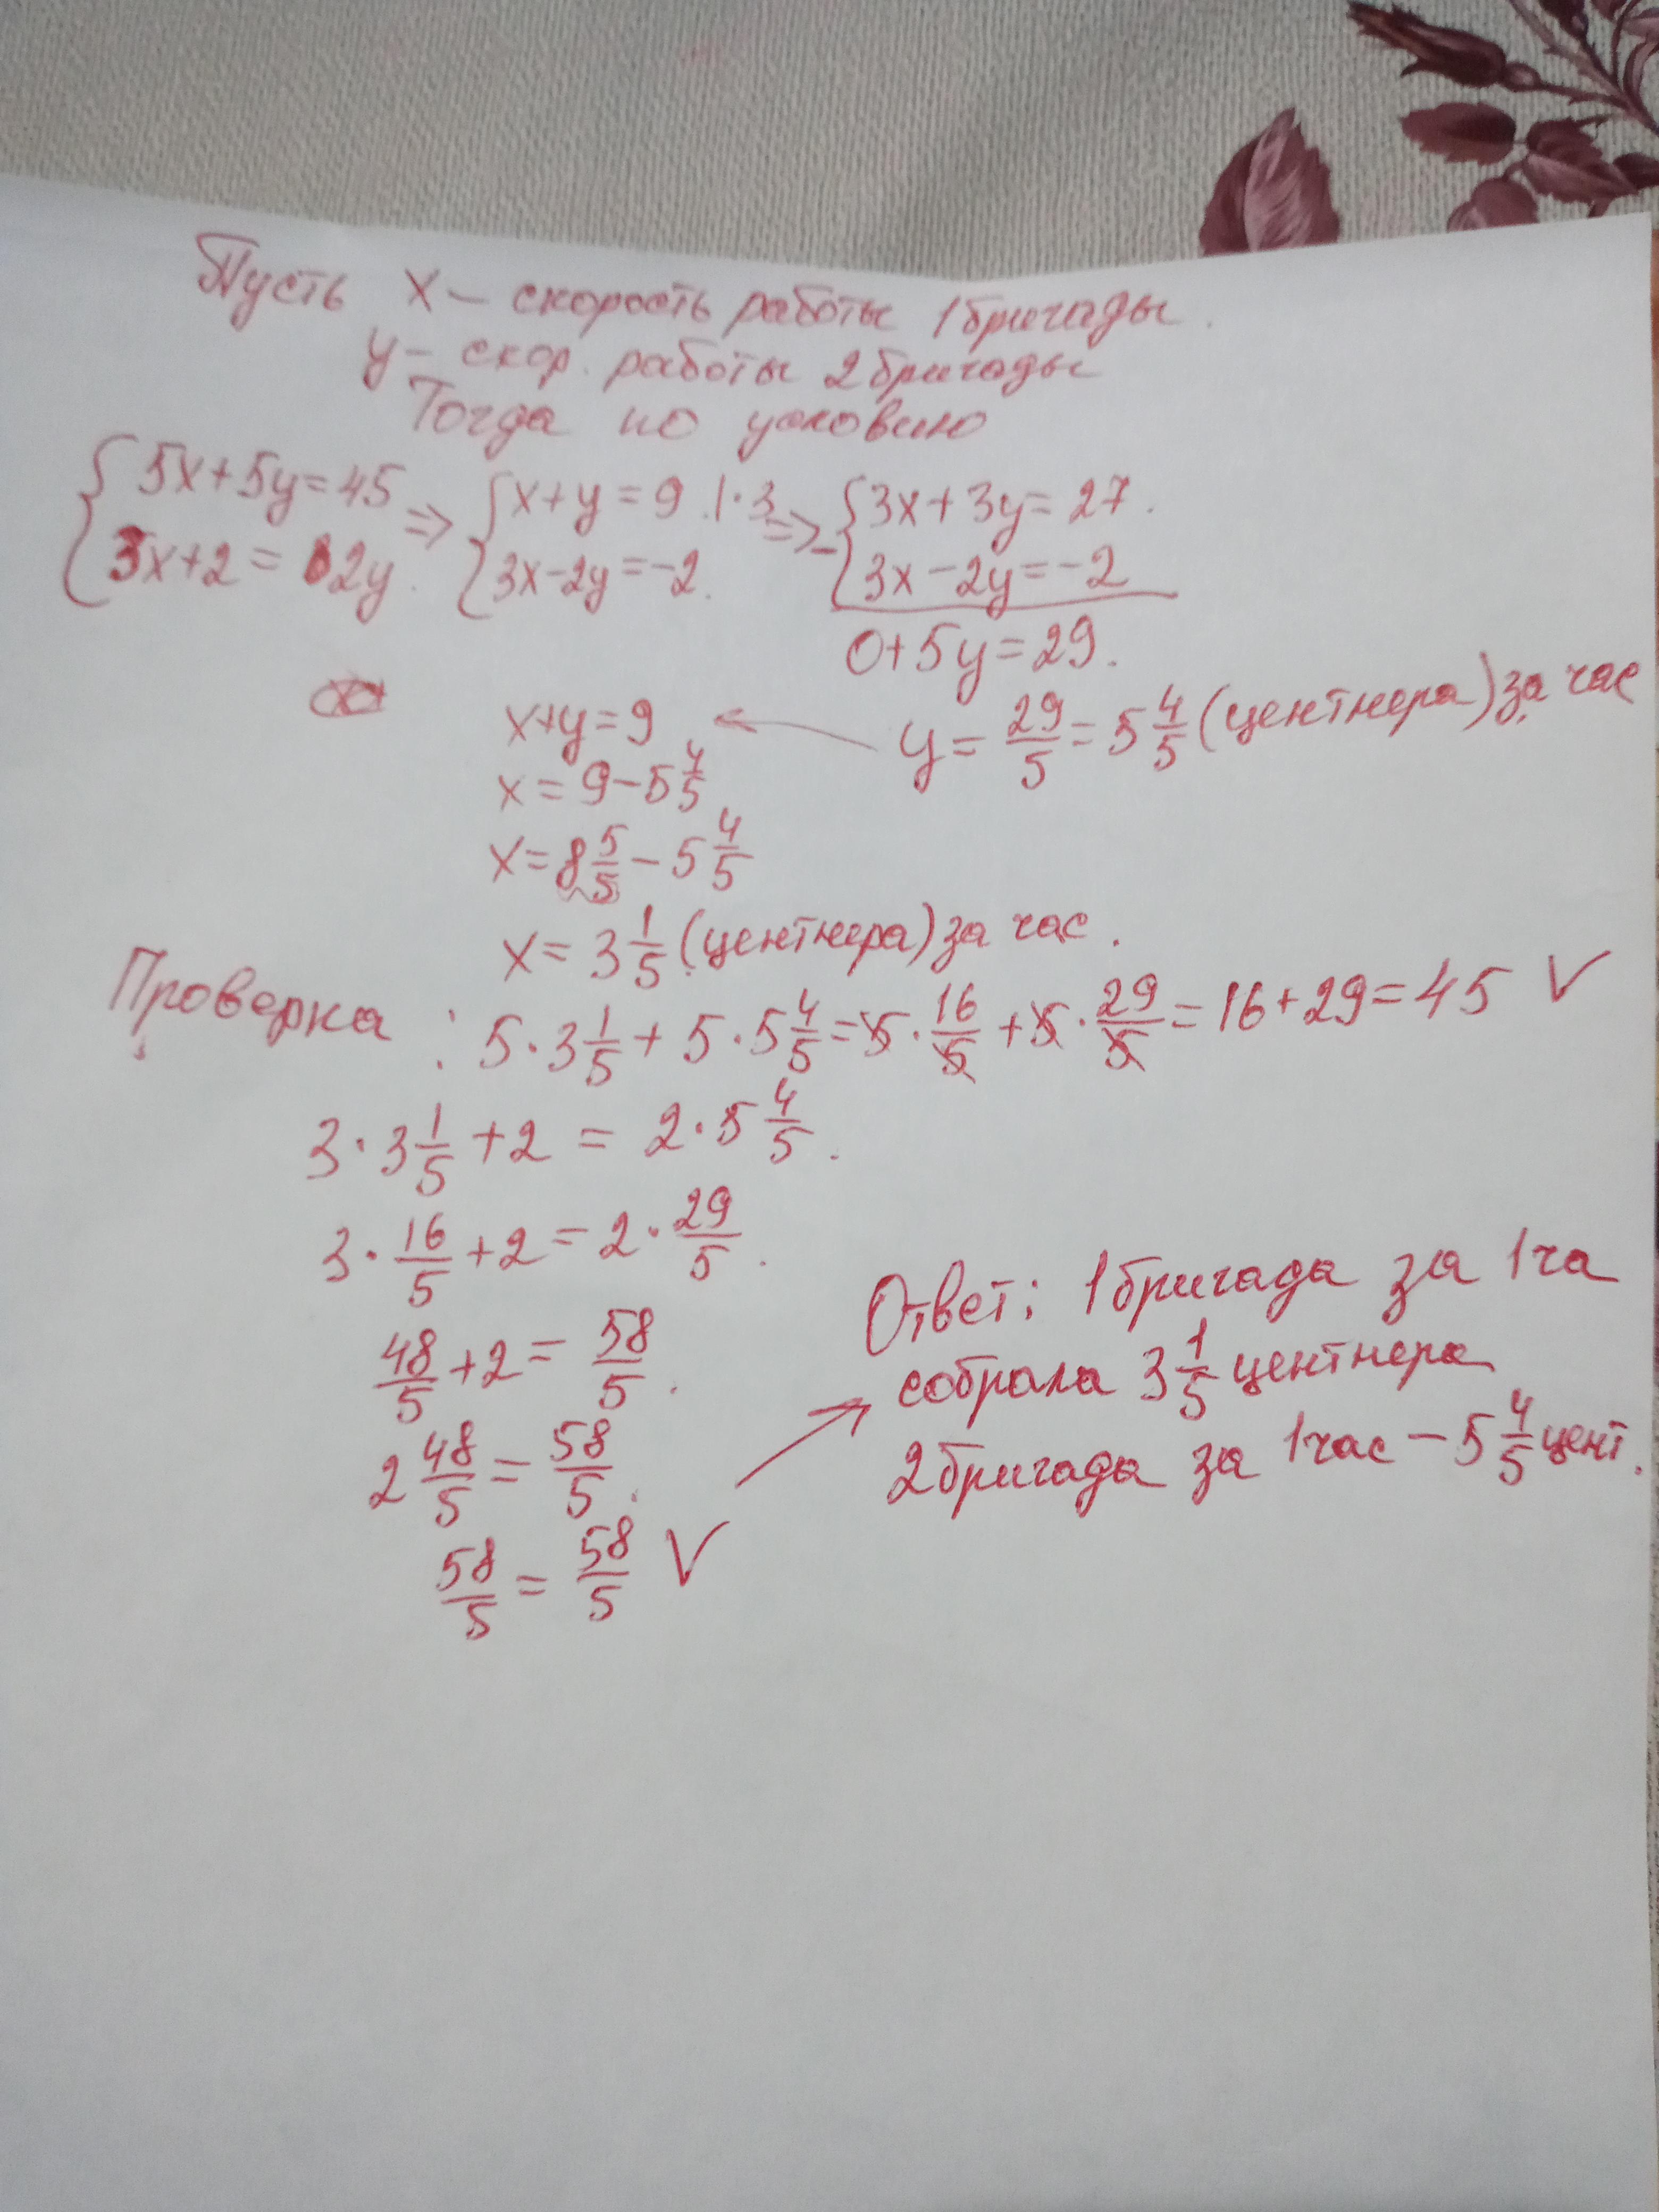 Пусть x – скорость работы 1 бригады.
y – скор. работы 2 бригады
Тогда по условию
{5x+5y=45 => {x+y=9 |·3 => {3x+3y=27.
{3x+2=2y. {3x-2y=-2. -{3x-2y=-2
0+5y=29.
x+y=9 ← y=29/5=5 4/5 (центнера) за час
x=9-5 4/5
x=8 5/5-5 4/5
x=3 1/5 (центнера) за час.
Проверка: 5·3 1/5+5·5 4/5=5·16/5+5·29/5=16+29=45 V
3·3 1/5+2=2·5 4/5.
3·16/5+2=2·29/5.
48/5+2=58/5.
2 48/5=58/5.
58/5=58/5 V
Ответ: 1 бригада за 1 ча
собрала 3 1/5 центнера
2 бригада за 1 час – 5 4/5 цент.